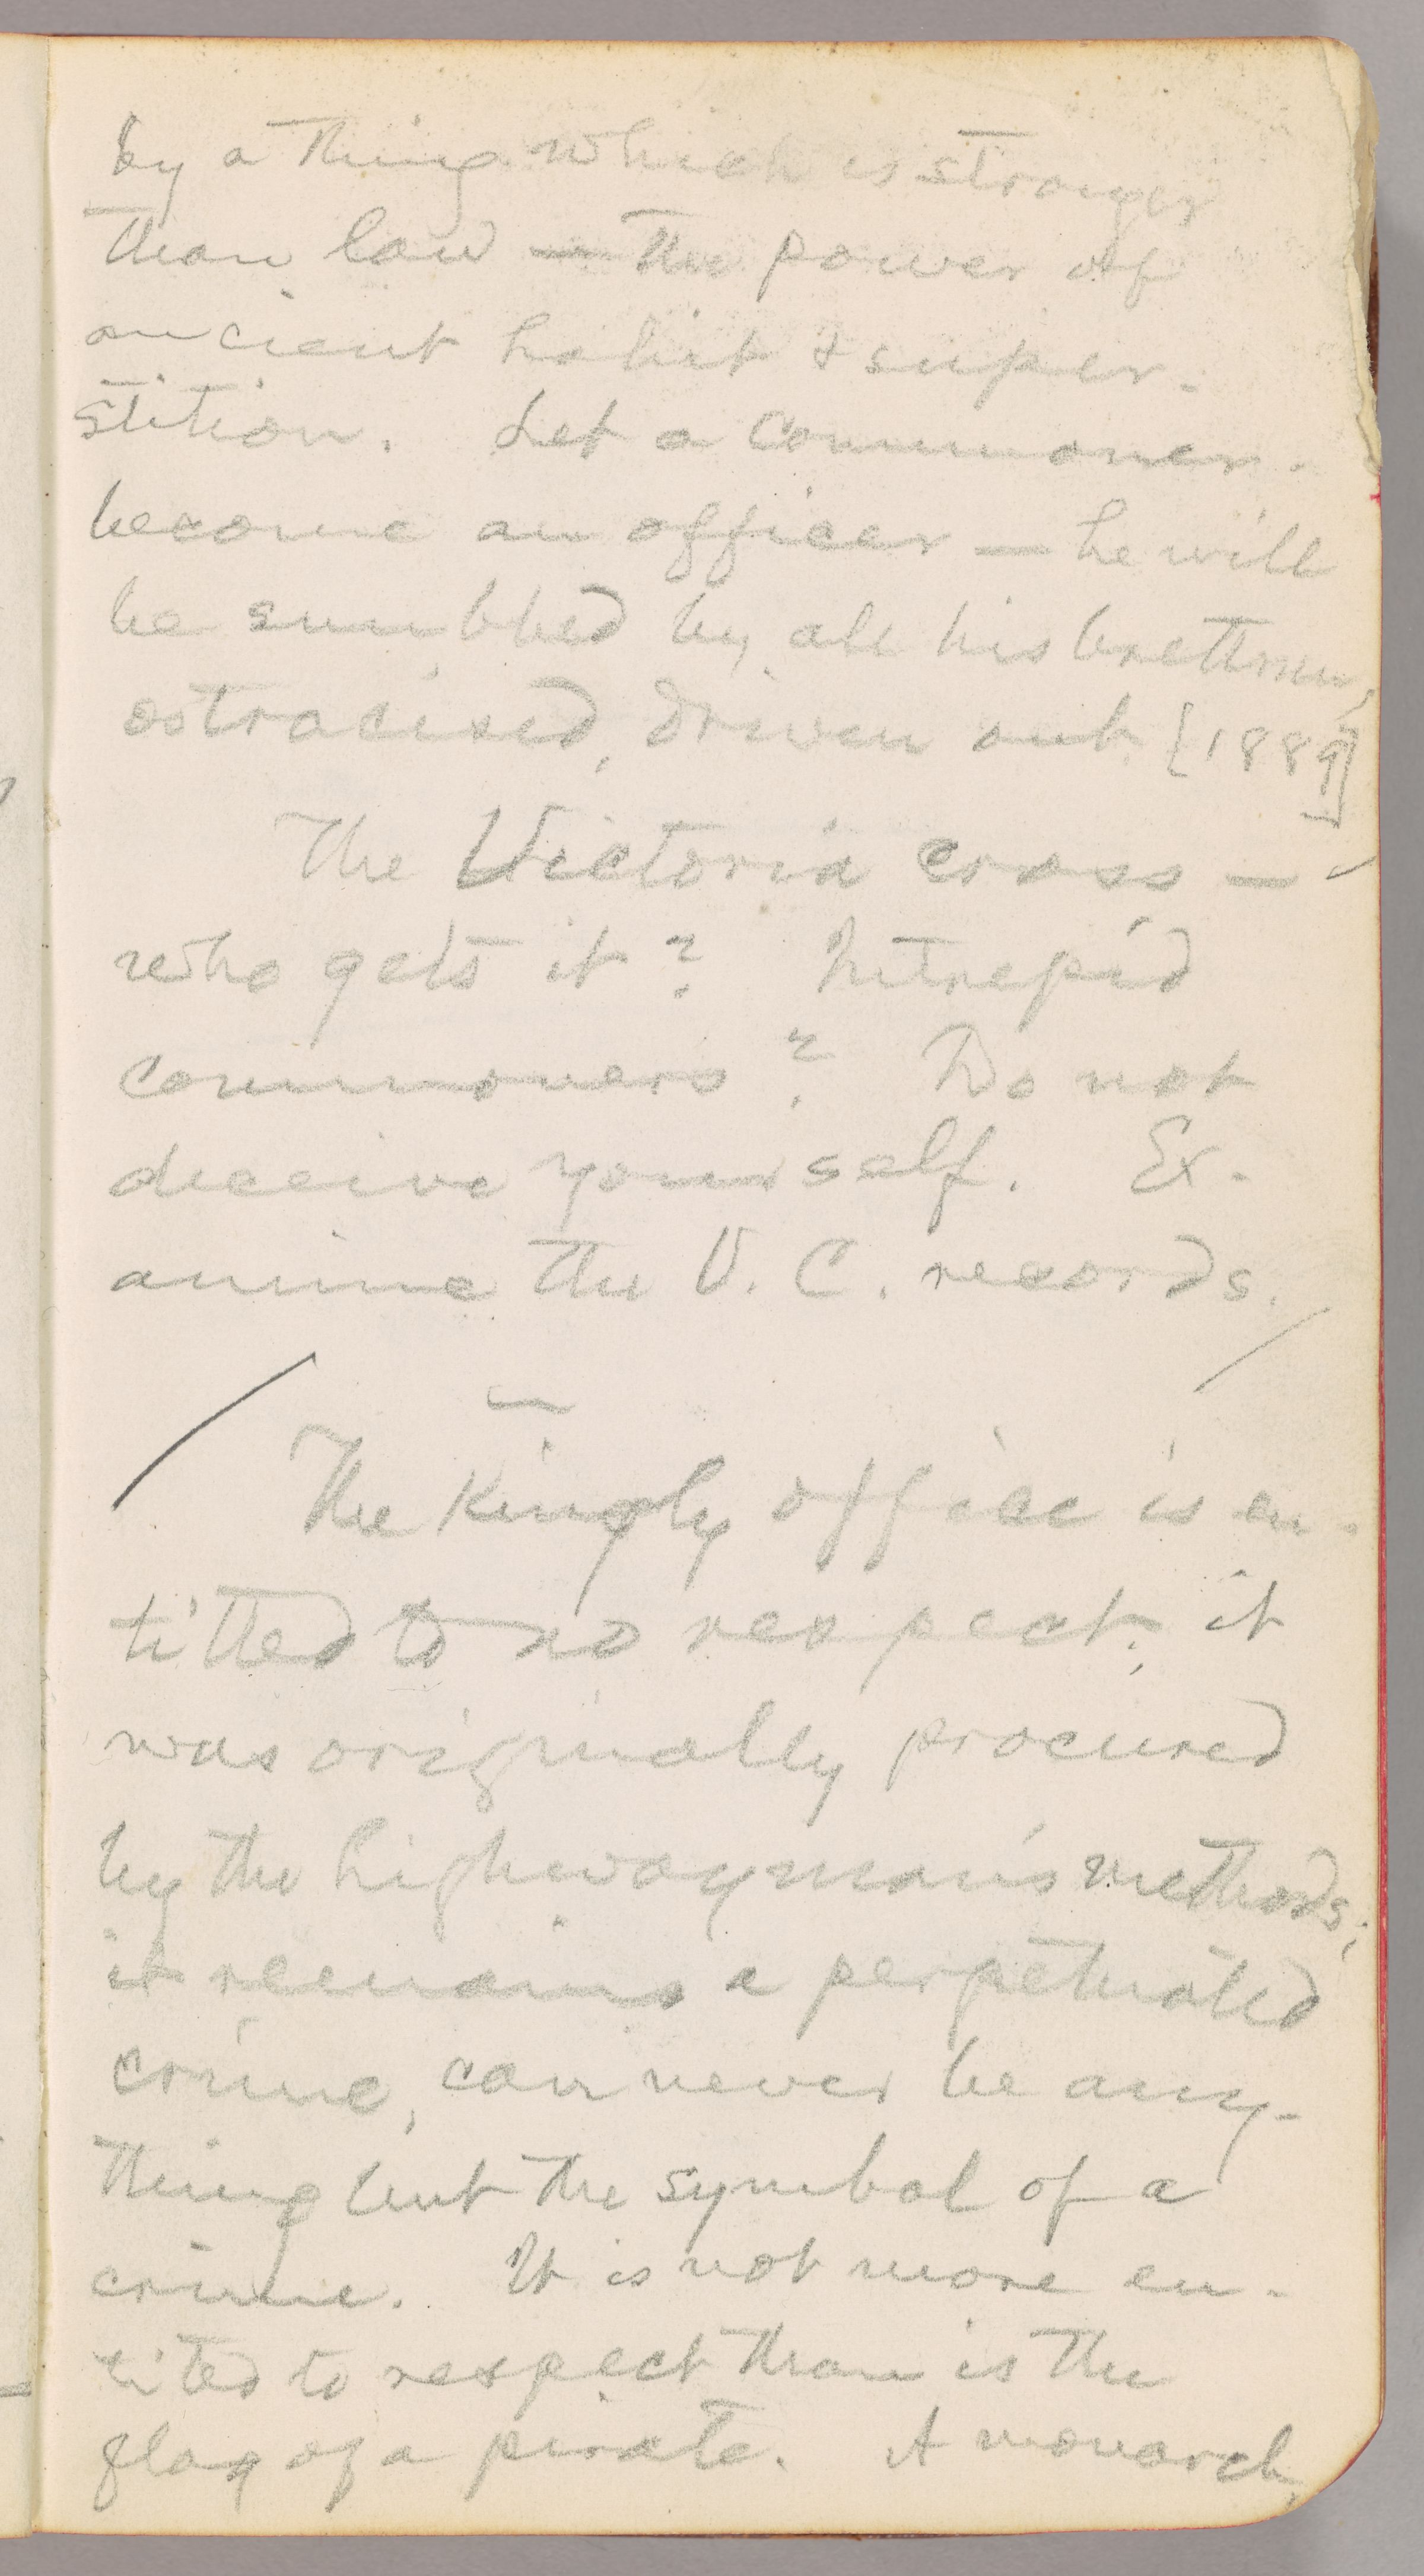 by a thing which is stronger
than law — the power of
ancient habit & super-
stition. Let a commoner
become an officer — he will
be snubbed by all his brethren,
ostracised, driven out. [1889]
The Victoria cross —
who gets it? Intrepid
commoners? Do not
deceive yourself. Ex-
amine the V. C. records.
The kingly office is en-
titled to no respect; it
was originally procured
by the highwayman's methods;
it remains a perpetuated
crime, can never be any-
thing but the symbol of a
crime. It is not more en-
titled to respect than is the
flag of a pirate. A monarch,